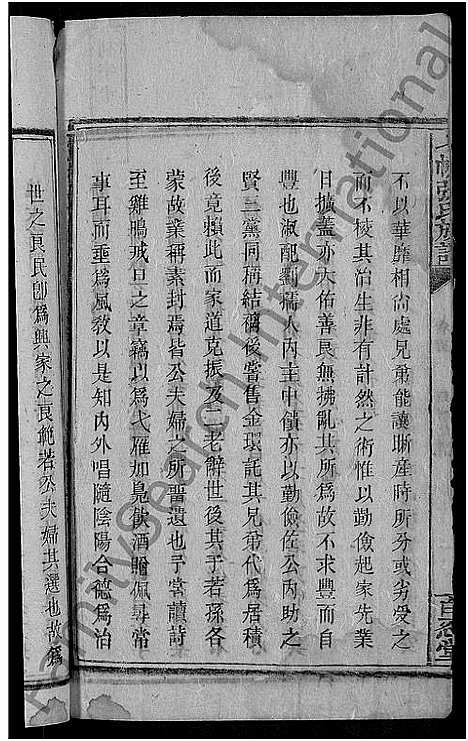 不以華靡相尚處兄弟能讓晰產時所分或劣受之
而不棱其治生非有計然之術惟以勤儉起家先業
日擴蓋亦天佑善良無拂亂其所為故不求豐而自
豐也淑配劉孺人內主中饋亦以勤儉佐公內助之
賢三黨同稱結褵後嘗售金環託其兄弟代為居積
後竟賴此而家道克振及二老辭世後其子若孫各
蒙故業稱素封焉皆公夫婦之所畱遺也予嘗讀詩
至雞鳴戒旦之章竊以為弋雁加鳧飲酒贈佩尋常
事耳而垂為風教以是知內外唱隨陰陽合德為治
世之良民卽為興家之良範若公夫婦其選也故為
張氏族譜
百忍堂
FamilySearch International